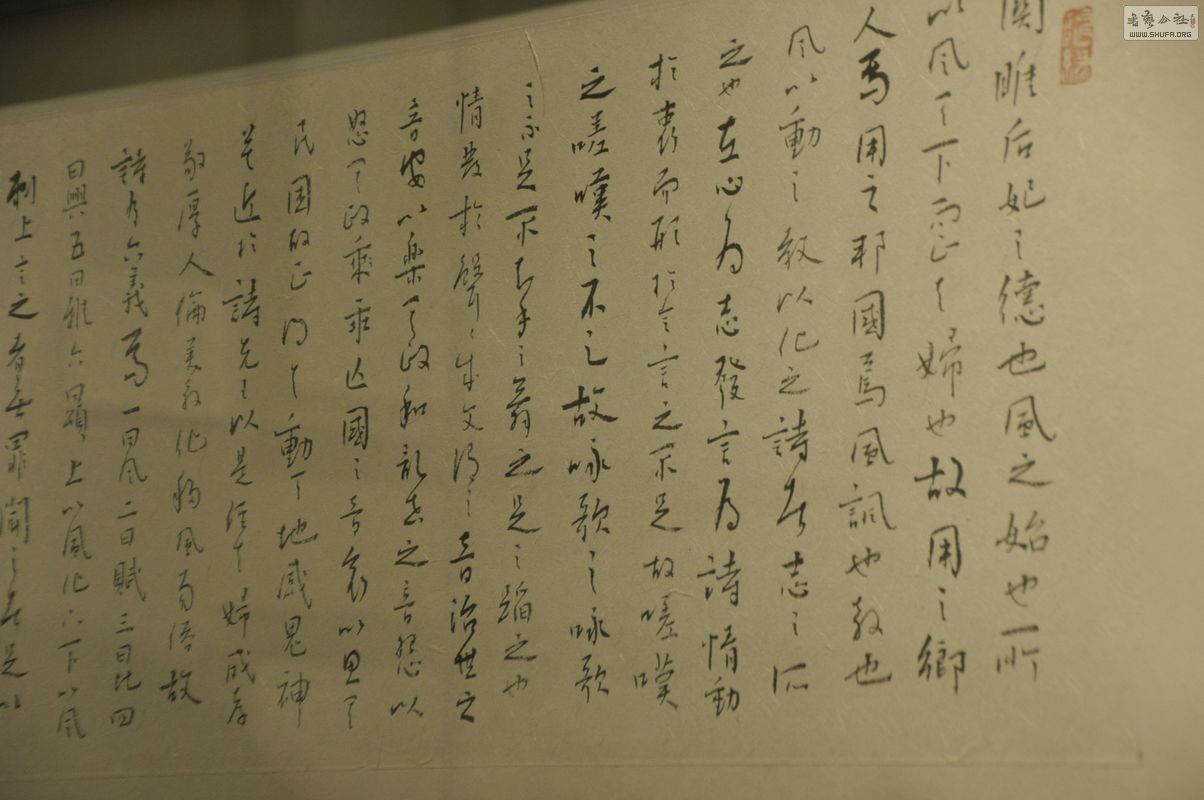 関雎后妃之德也風之始也所
以風天下而正夫婦也故用之鄉
人焉用之邦國焉風諷也教也
風以動之教以化之詩者志之所
之也在心為志發言為詩情動
於衷而形於言言之不足故嗟嘆
之嗟嘆之不足故咏歌之咏歌
之不足不知手之舞之足之蹈之也
情發於聲聲成文謂之音治世之
音安以樂其政和亂世之音怨以
怒其政乖乖亡國之音哀以思其
民困故正得失動天地感鬼神
莫近於詩先王以是經夫婦成孝
敬厚人倫美教化移風易俗故
詩有六義焉一曰風二曰賦三曰比四
曰興五曰雅六曰頌上以風化下下以風
刺上言之者無罪聞之者足以
書藝公社
WWW.SHUFA.ORG